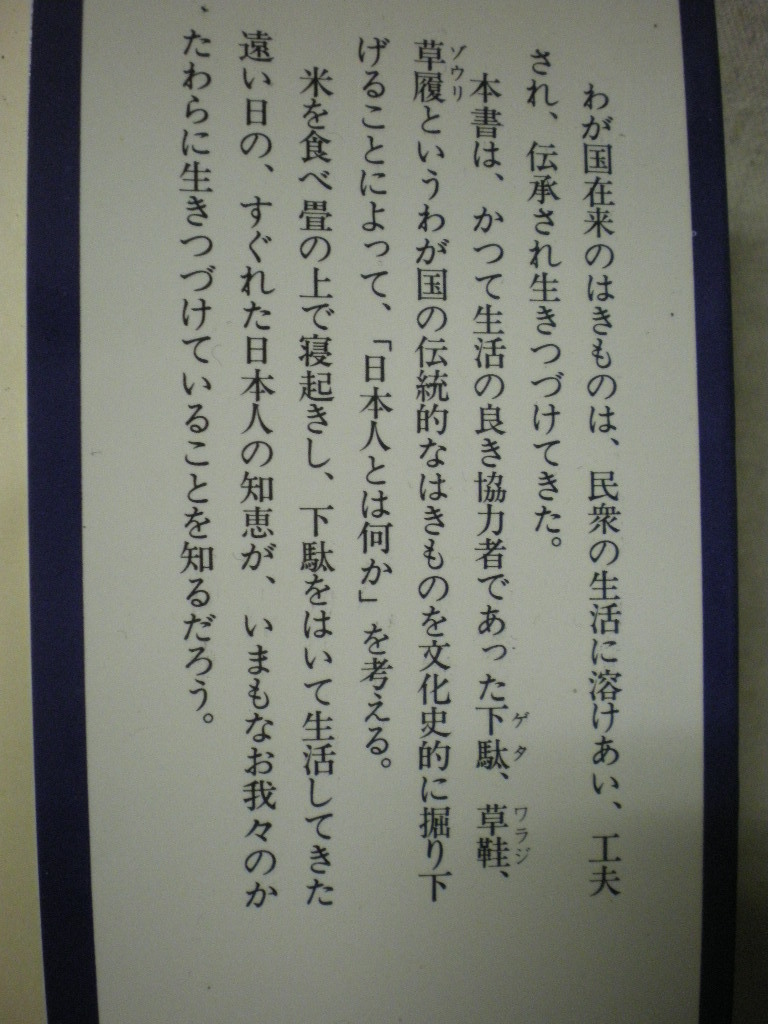 わが国在来のはきものは、民衆の生活に溶けあい、工夫
され、伝承され生きつづけてきた。
本書は、かつて生活の良き協力者であった下駄、草鞋、
ゲタ
ワラジ
草履というわが国の伝統的なはきものを文化史的に掘り下
ゾウリ
げることによって、「日本人とは何か」を考える。
米を食べ畳の上で寝起きし、下駄をはいて生活してきた
遠い日の、すぐれた日本人の知恵が、いまもなお我々のか
たわらに生きつづけていることを知るだろう。